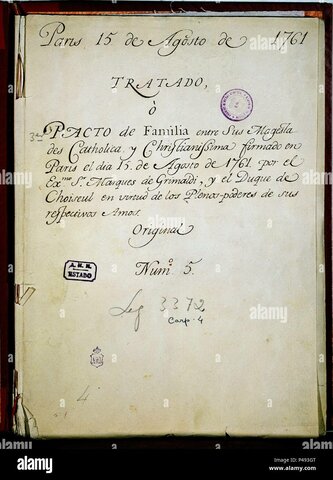 Paris 15 de Agosto de 1761
TRATADO,
ò
3er PACTO de Familia entre Sus Magesta
des Catholica, y Christianissima firmado en
Paris el dia 15. de Agosto de 1761. por el
Exmo. Sr. Marques de Grimaldi, y el Duque de
Choiseul en virtud de los Plenos-poderes de sus
respectivos Amos.
Original
Numº. 5.
A.H.N.
ESTADO
Leg 3372
Carp-4
4
alamy stock photo
P493GT
www.alamy.com